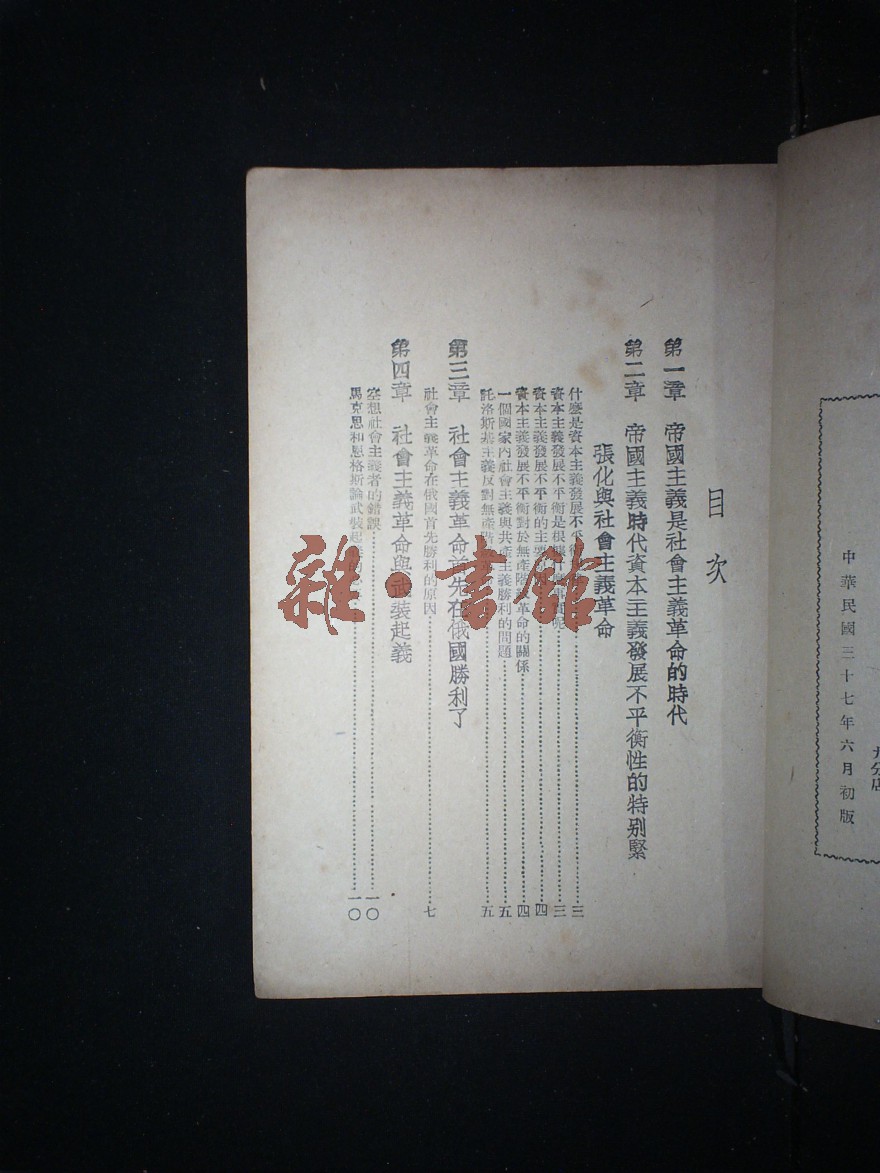 中華民國三十七年六月初版
分店
目次
第一章 帝國主義是社會主義革命的時代
第二章 帝國主義時代資本主義發展不平衡性的特別緊
張化與社會主義革命
什麼是資本主義發展不平衡 三
資本主義發展不平衡是根 三
資本主義發展不平衡的主要 四
資本主義發展不平衡對於無產階級革命的關係 四
一個國家內社會主義與共產主義勝利的問題 五
託洛斯基主義反對無產階 五
第三章 社會主義革命首先在俄國勝利了
社會主義革命在俄國首先勝利的原因 七
第四章 社會主義革命與武裝起義
空想社會主義者的錯誤 一〇
馬克思和恩格斯論武裝起 一〇
雜·書館